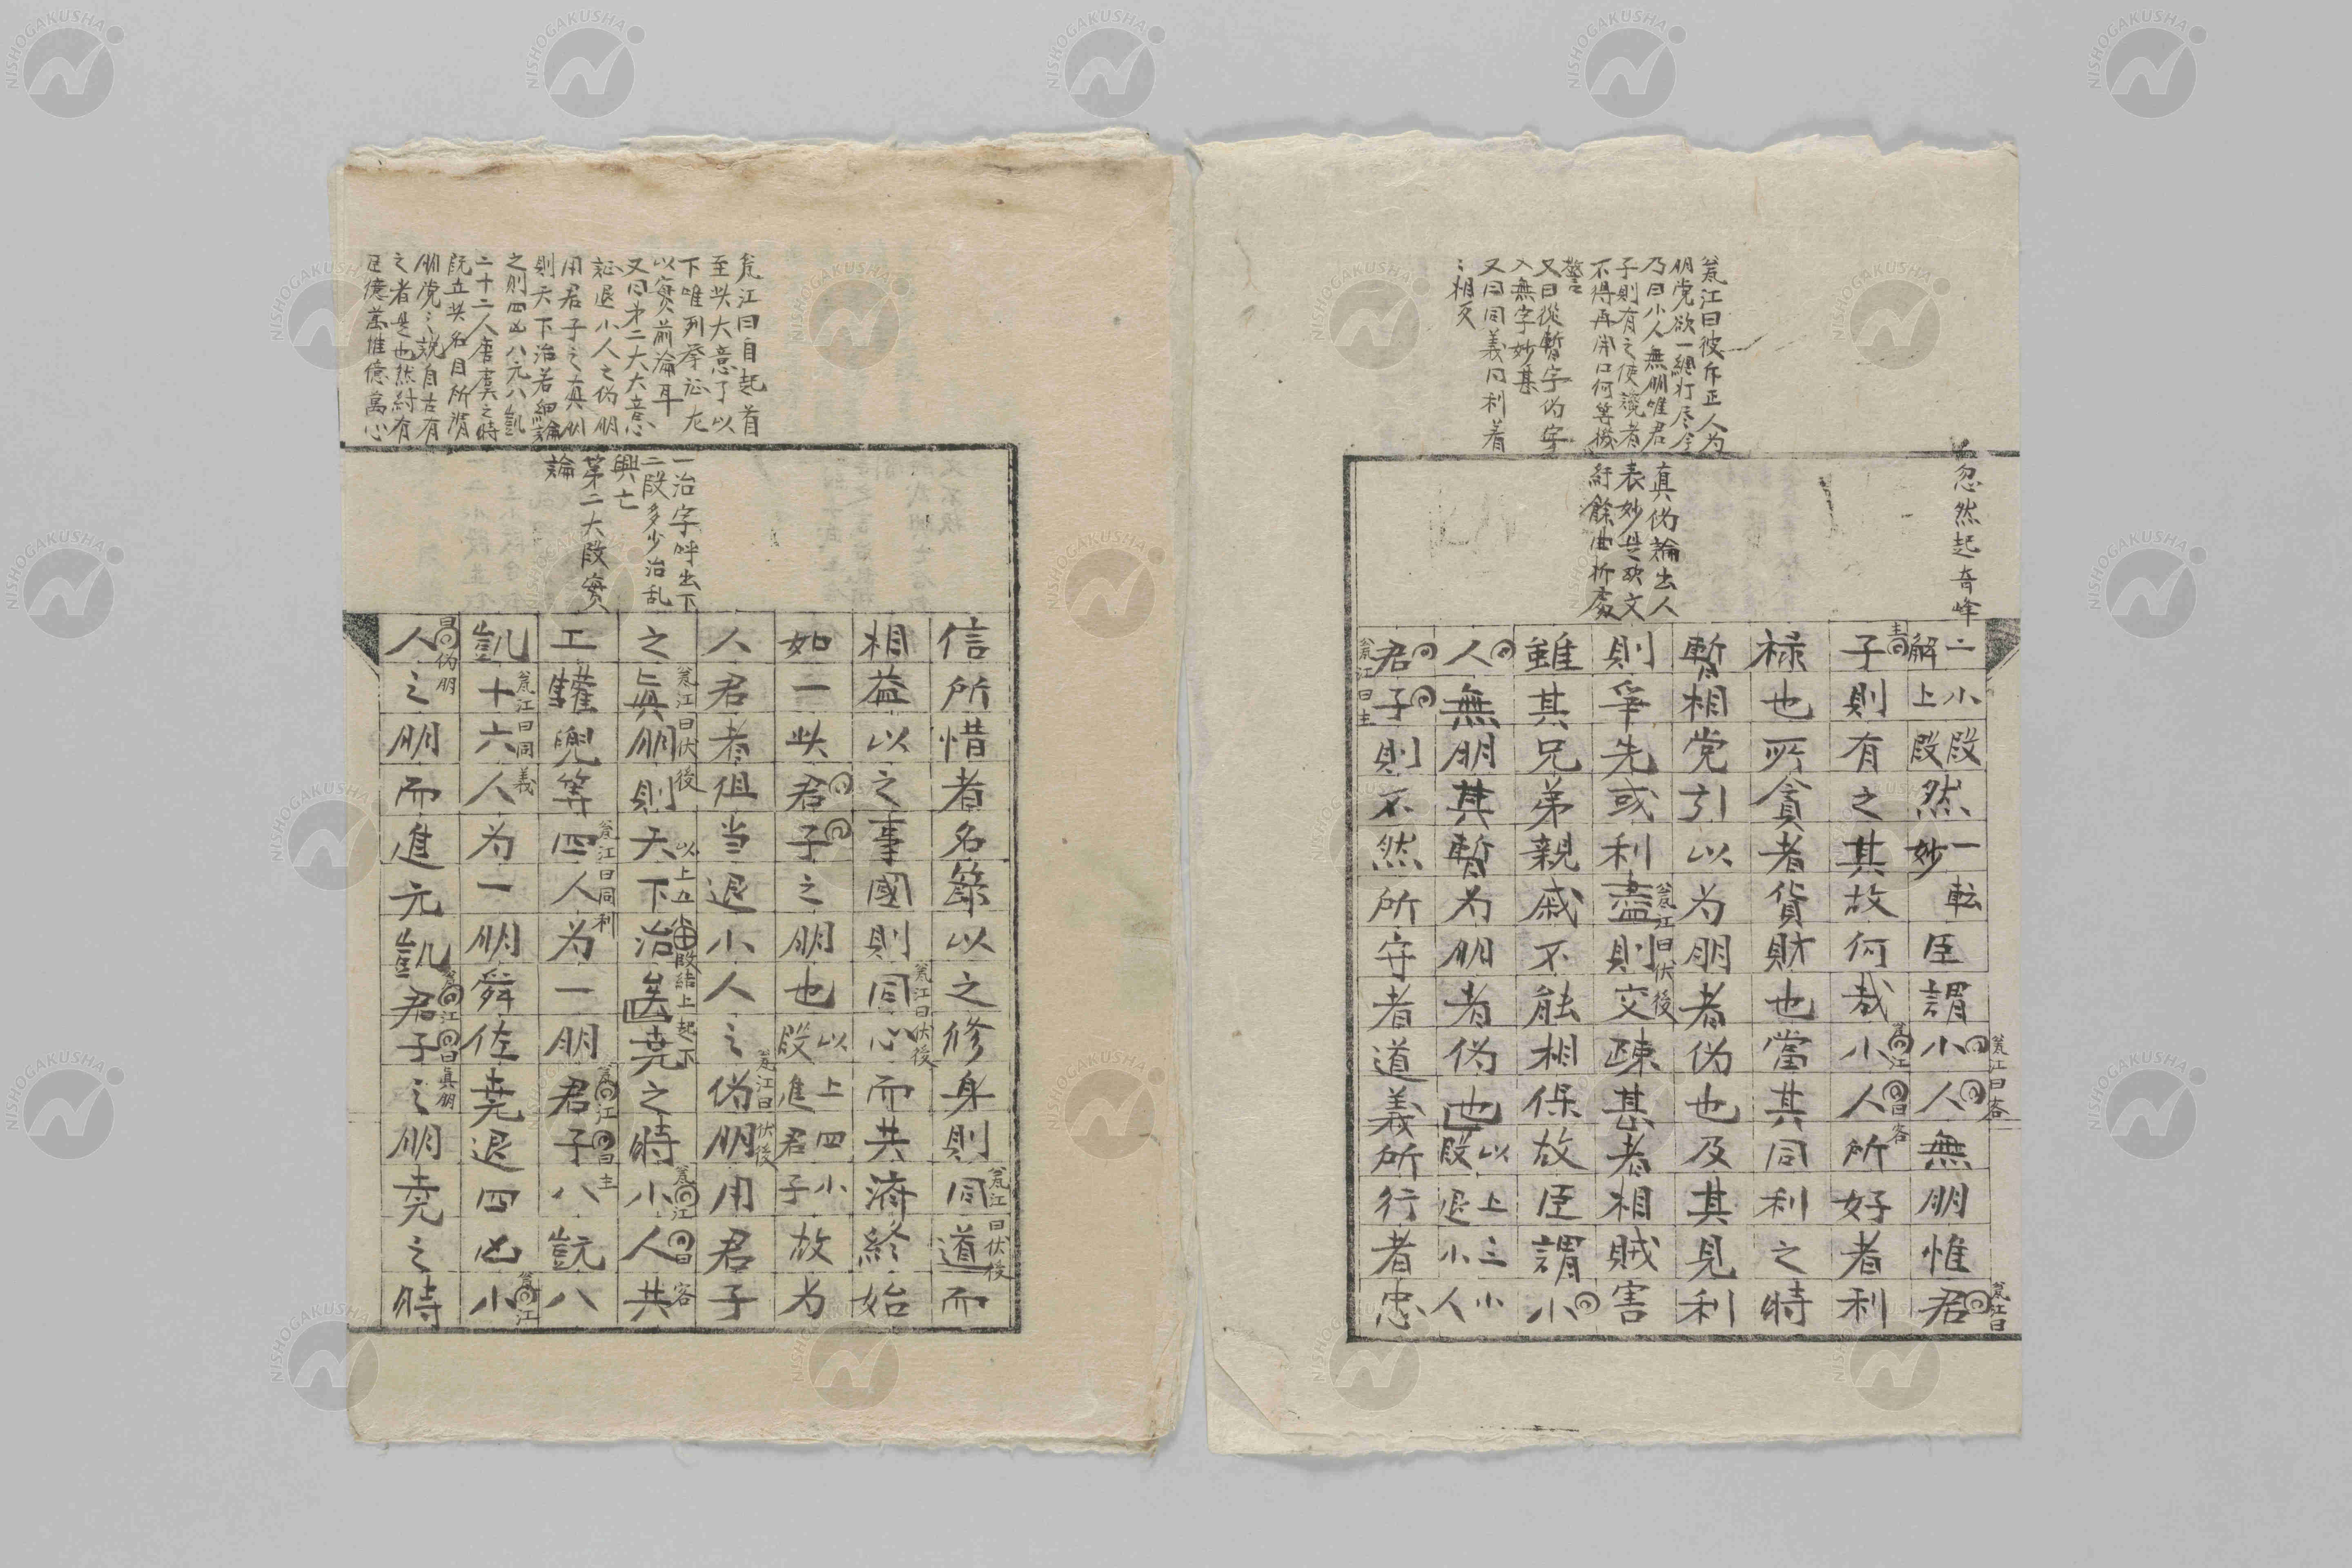 忽然起奇峰
翁江曰彼斥正人为
朋党欲一網打尽今
乃曰小人無朋唯君
子則有之使讒者
不得再開口何等機
警
又曰從暫字伪字
入無字妙甚
又曰同義同利着
〻相反
真伪論出人
表妙是欧文
紆餘曲折處
二小段一転
解上段妙
然臣謂小人無朋惟君
翁江曰客
翁江曰
主
子則有之其故何哉小人所好者利
翁江曰客
禄也所貪者貨財也當其同利之時
暫相党引以为朋者伪也及其見利
則爭先或利盡則交疎甚者相賊害
翁江曰伏後
雖其兄弟親戚不能相保故臣謂小
人無朋其暫为朋者伪也
以上三小
段退小人
君子則不然所守者道義所行者忠
翁江曰主
翁江曰自起首
至此大意了以
下唯列举証左
以實前論耳
又曰第二大大意
証退小人之伪朋
用君子之真朋
則天下治若細論
之則四凶八元八凱
二十二人唐虞之時
既立此名目所謂
朋党〻説自古有
之者是也然紂有
臣億萬惟億萬心
一治字呼出下
二段多少治乱
興亡
第二大段實
論
信所惜者名節以之修身則同道而
翁江曰伏後
相益以之事國則同心而共濟終始
翁江曰伏後
如一此君子之朋也
以上四小
段進君子
故为
人君者徂当退小人之伪朋用君子
翁江曰伏後
之真朋則天下治矣堯之時小人共
翁江曰伏後
以上五小段結上起下
翁江曰客
工驩兜等四人为一朋君子八元八
翁江曰同利
翁江曰主
凱十六人为一朋舜佐堯退四凶小
翁江曰同義
翁江
人之朋而進元凱君子之朋堯之時
曰伪朋
翁江曰真朋
NISHOGAKUSHA